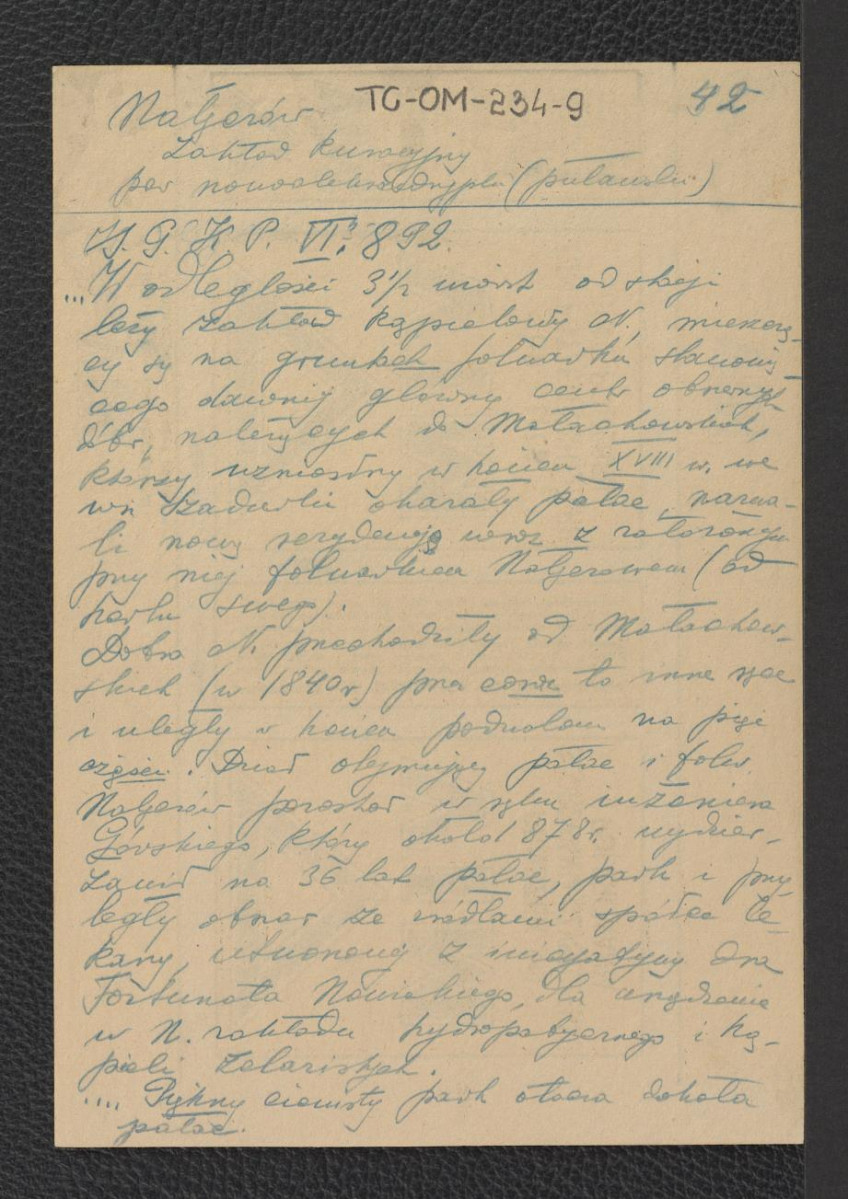 TG-OM-234-9
42
Nałęczów
Zakład kuracyjny
pow nowoaleksandryjski (puławski)
S. G. K. P. VI. 892.
... "W odległości 3 1/2 wiorst od stacji
leży zakład kąpielowy N. mieszczą-
cy się na gruntach folwarku stanowią-
cego dawniej główny centr obszernych
dóbr, należących do Małachowskich,
którzy wzniósłszy w końcu XVIII w. we
wsi okazały pałac, nazwa-
li nową rezydencję wraz z założonym
przy niej folwarkiem Nałęczowem (od
herbu swego).
Dobra N. przechodziły od Małachow-
skich (w 1840 r) przez coraz to inne ręce
i uległy w końcu podziałom na pięć
części. Dział obejmujący pałac i folw.
Nałęczów pozostał w ręku inżeniera
Górskiego, który około 1878 r. wydzier-
żawił na 36 lat pałac, park i przy-
legły obszar ze źródłami spółce le-
karzy, utworzonej z inicyatywy dra
Fortunata Nowickiego, dla urządzenia
w N. zakładu hydropatycznego i ką-
pieli żelazistych.
.... Piękny cienisty park otacza dokoła
pałac.